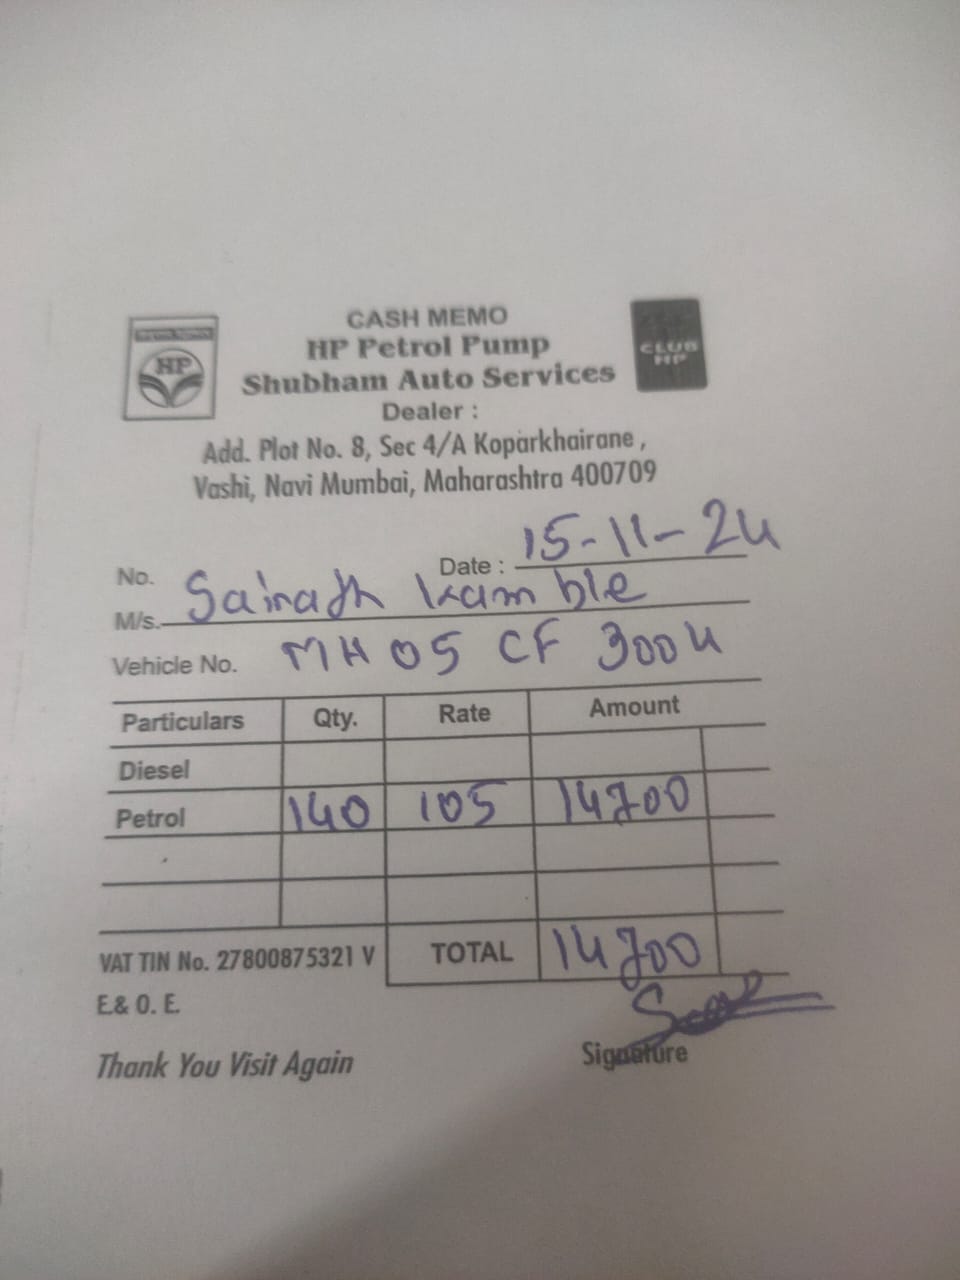 CASH MEMO
HP Petrol Pump
Shubham Auto Services
Dealer :
Add. Plot No. 8, Sec 4/A Koparkhairane,
Vashi, Navi Mumbai, Maharashtra 400709
HP
CLUB
HP
No. Date : 15-11-24
M/s. Sainath Kamble
Vehicle No. MH 05 CF 3004
Particulars Qty. Rate Amount
Diesel
Petrol 140 105 14700
VAT TIN No. 27800875321 V TOTAL 14700
E.& O. E.
Thank You Visit Again Signature